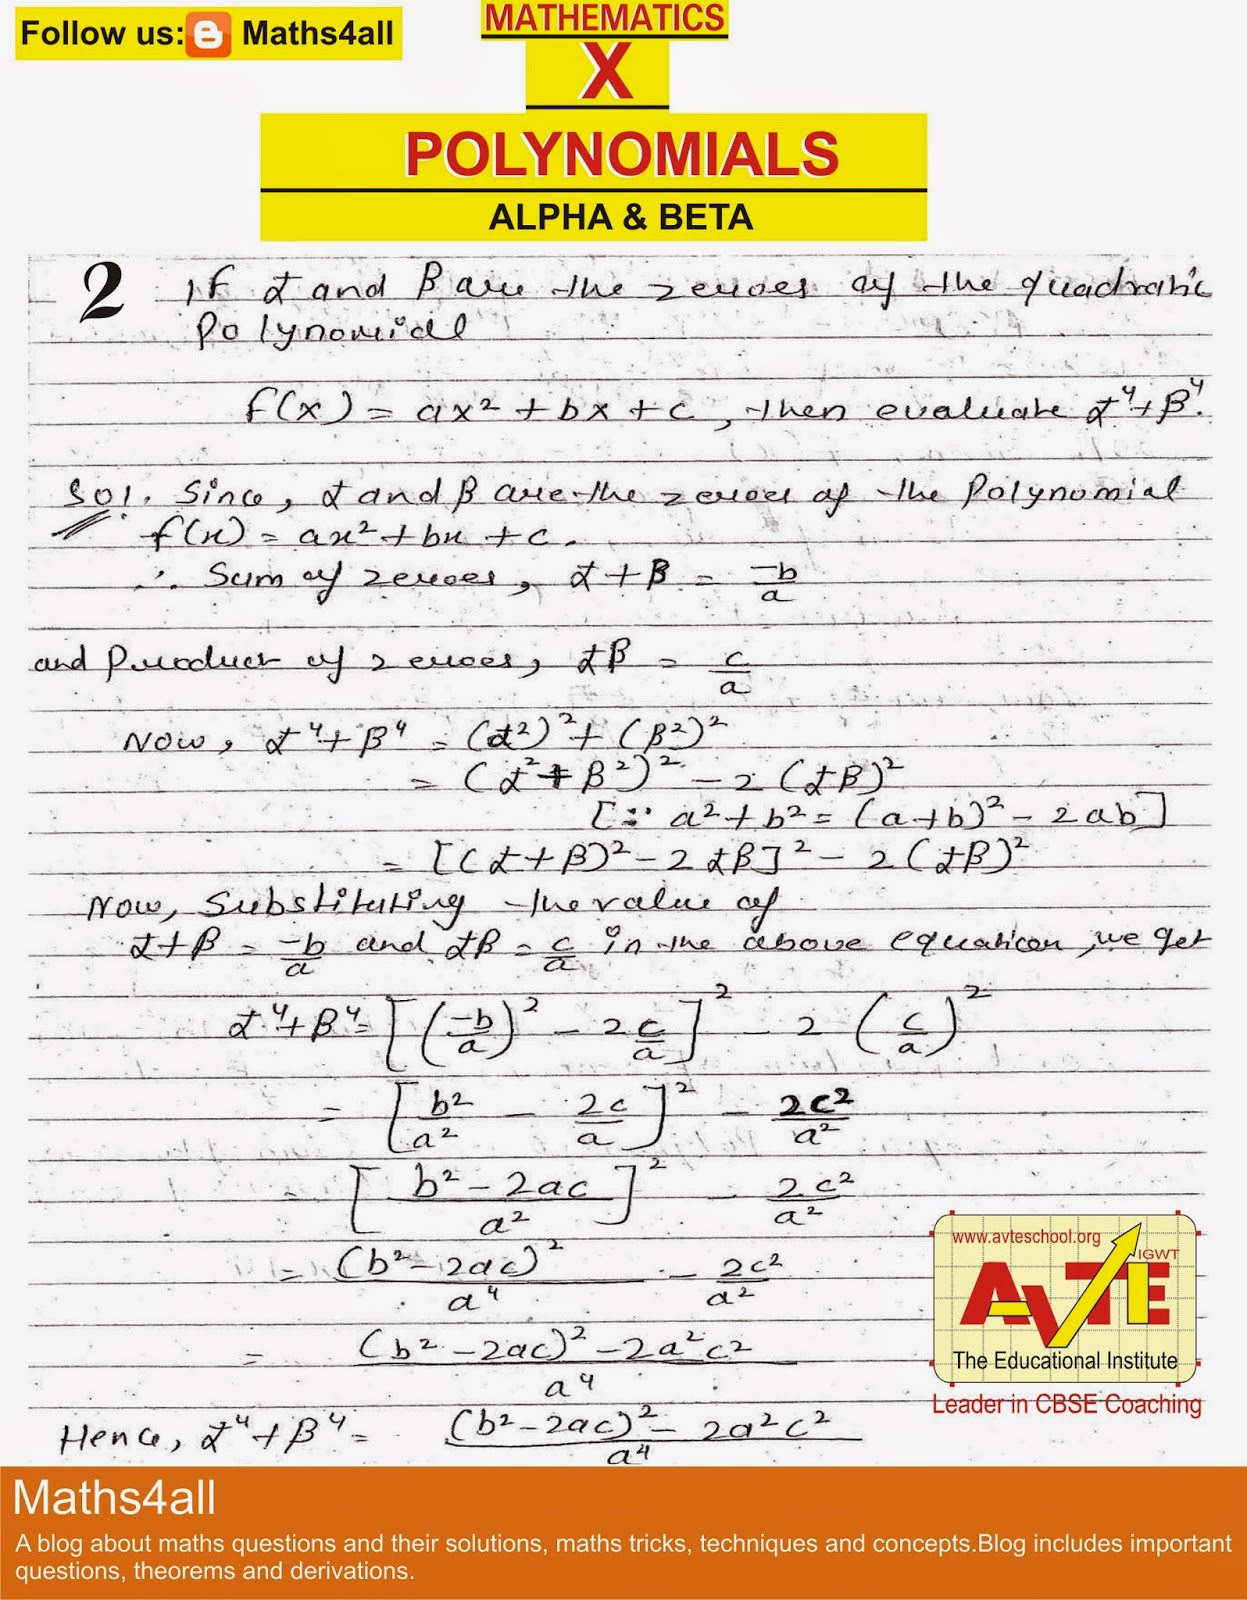 Follow us: Maths4all
MATHEMATICS
X
POLYNOMIALS
ALPHA & BETA
2 If α and β are the zeroes of the quadratic
Polynomial
f(x) = ax² + bx + c, then evaluate α⁴+β⁴.
Sol. Since, α and β are the zeroes of the Polynomial
f(x) = ax² + bx + c.
∴ Sum of zeroes, α + β = -b/a
and Product of zeroes, αβ = c/a
Now, α⁴+β⁴ = (α²)² + (β²)²
= (α²+β²)² - 2(αβ)²
[∵ a²+b² = (a+b)² - 2ab]
= [(α+β)² - 2αβ]² - 2(αβ)²
Now, Substituting the value of
α+β = -b/a and αβ = c/a in the above equation, we get
α⁴+β⁴ = [(-b/a)² - 2c/a]² - 2(c/a)²
= [b²/a² - 2c/a]² - 2c²/a²
= [(b²-2ac)/a²]² - 2c²/a²
= (b²-2ac)²/a⁴ - 2c²/a²
= ((b²-2ac)² - 2a²c²)/a⁴
Hence, α⁴+β⁴ = ((b²-2ac)² - 2a²c²)/a⁴
www.avteschool.org
IGWT
AVTE
The Educational Institute
Leader in CBSE Coaching
Maths4all
A blog about maths questions and their solutions, maths tricks, techniques and concepts.Blog includes important
questions, theorems and derivations.